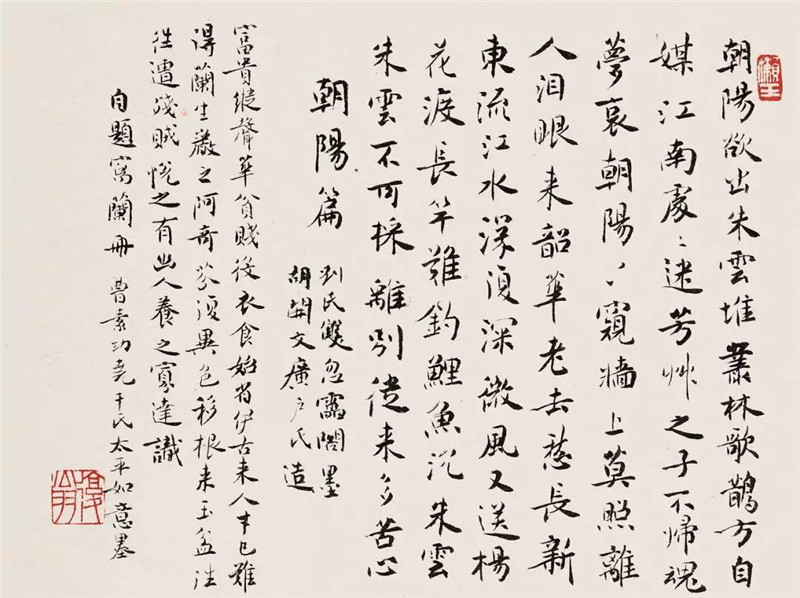 朝陽欲出朱雲堆叢林歌鵲方自
媒江南處〻迷芳艸之子不歸魂
夢哀朝陽〻〻窺牆上莫照離
人淚眼来韶華老去愁長新
東流江水深復深微風又送楊
花渡長竿難釣鯉魚沉朱雲
朱雲不可採離别從来多苦心
朝陽篇
劉氏雙忽雷閣墨
胡開文廣户氏造
富貴縱聲華貧賤後衣食始
伊古来人才已難
得蘭生巖之阿奇芬復異色移根来玉盆往
往遭殘賊悦之有出人養之寡達識
自題寫蘭冊 曹素功堯千氏太平如意墨
復翁